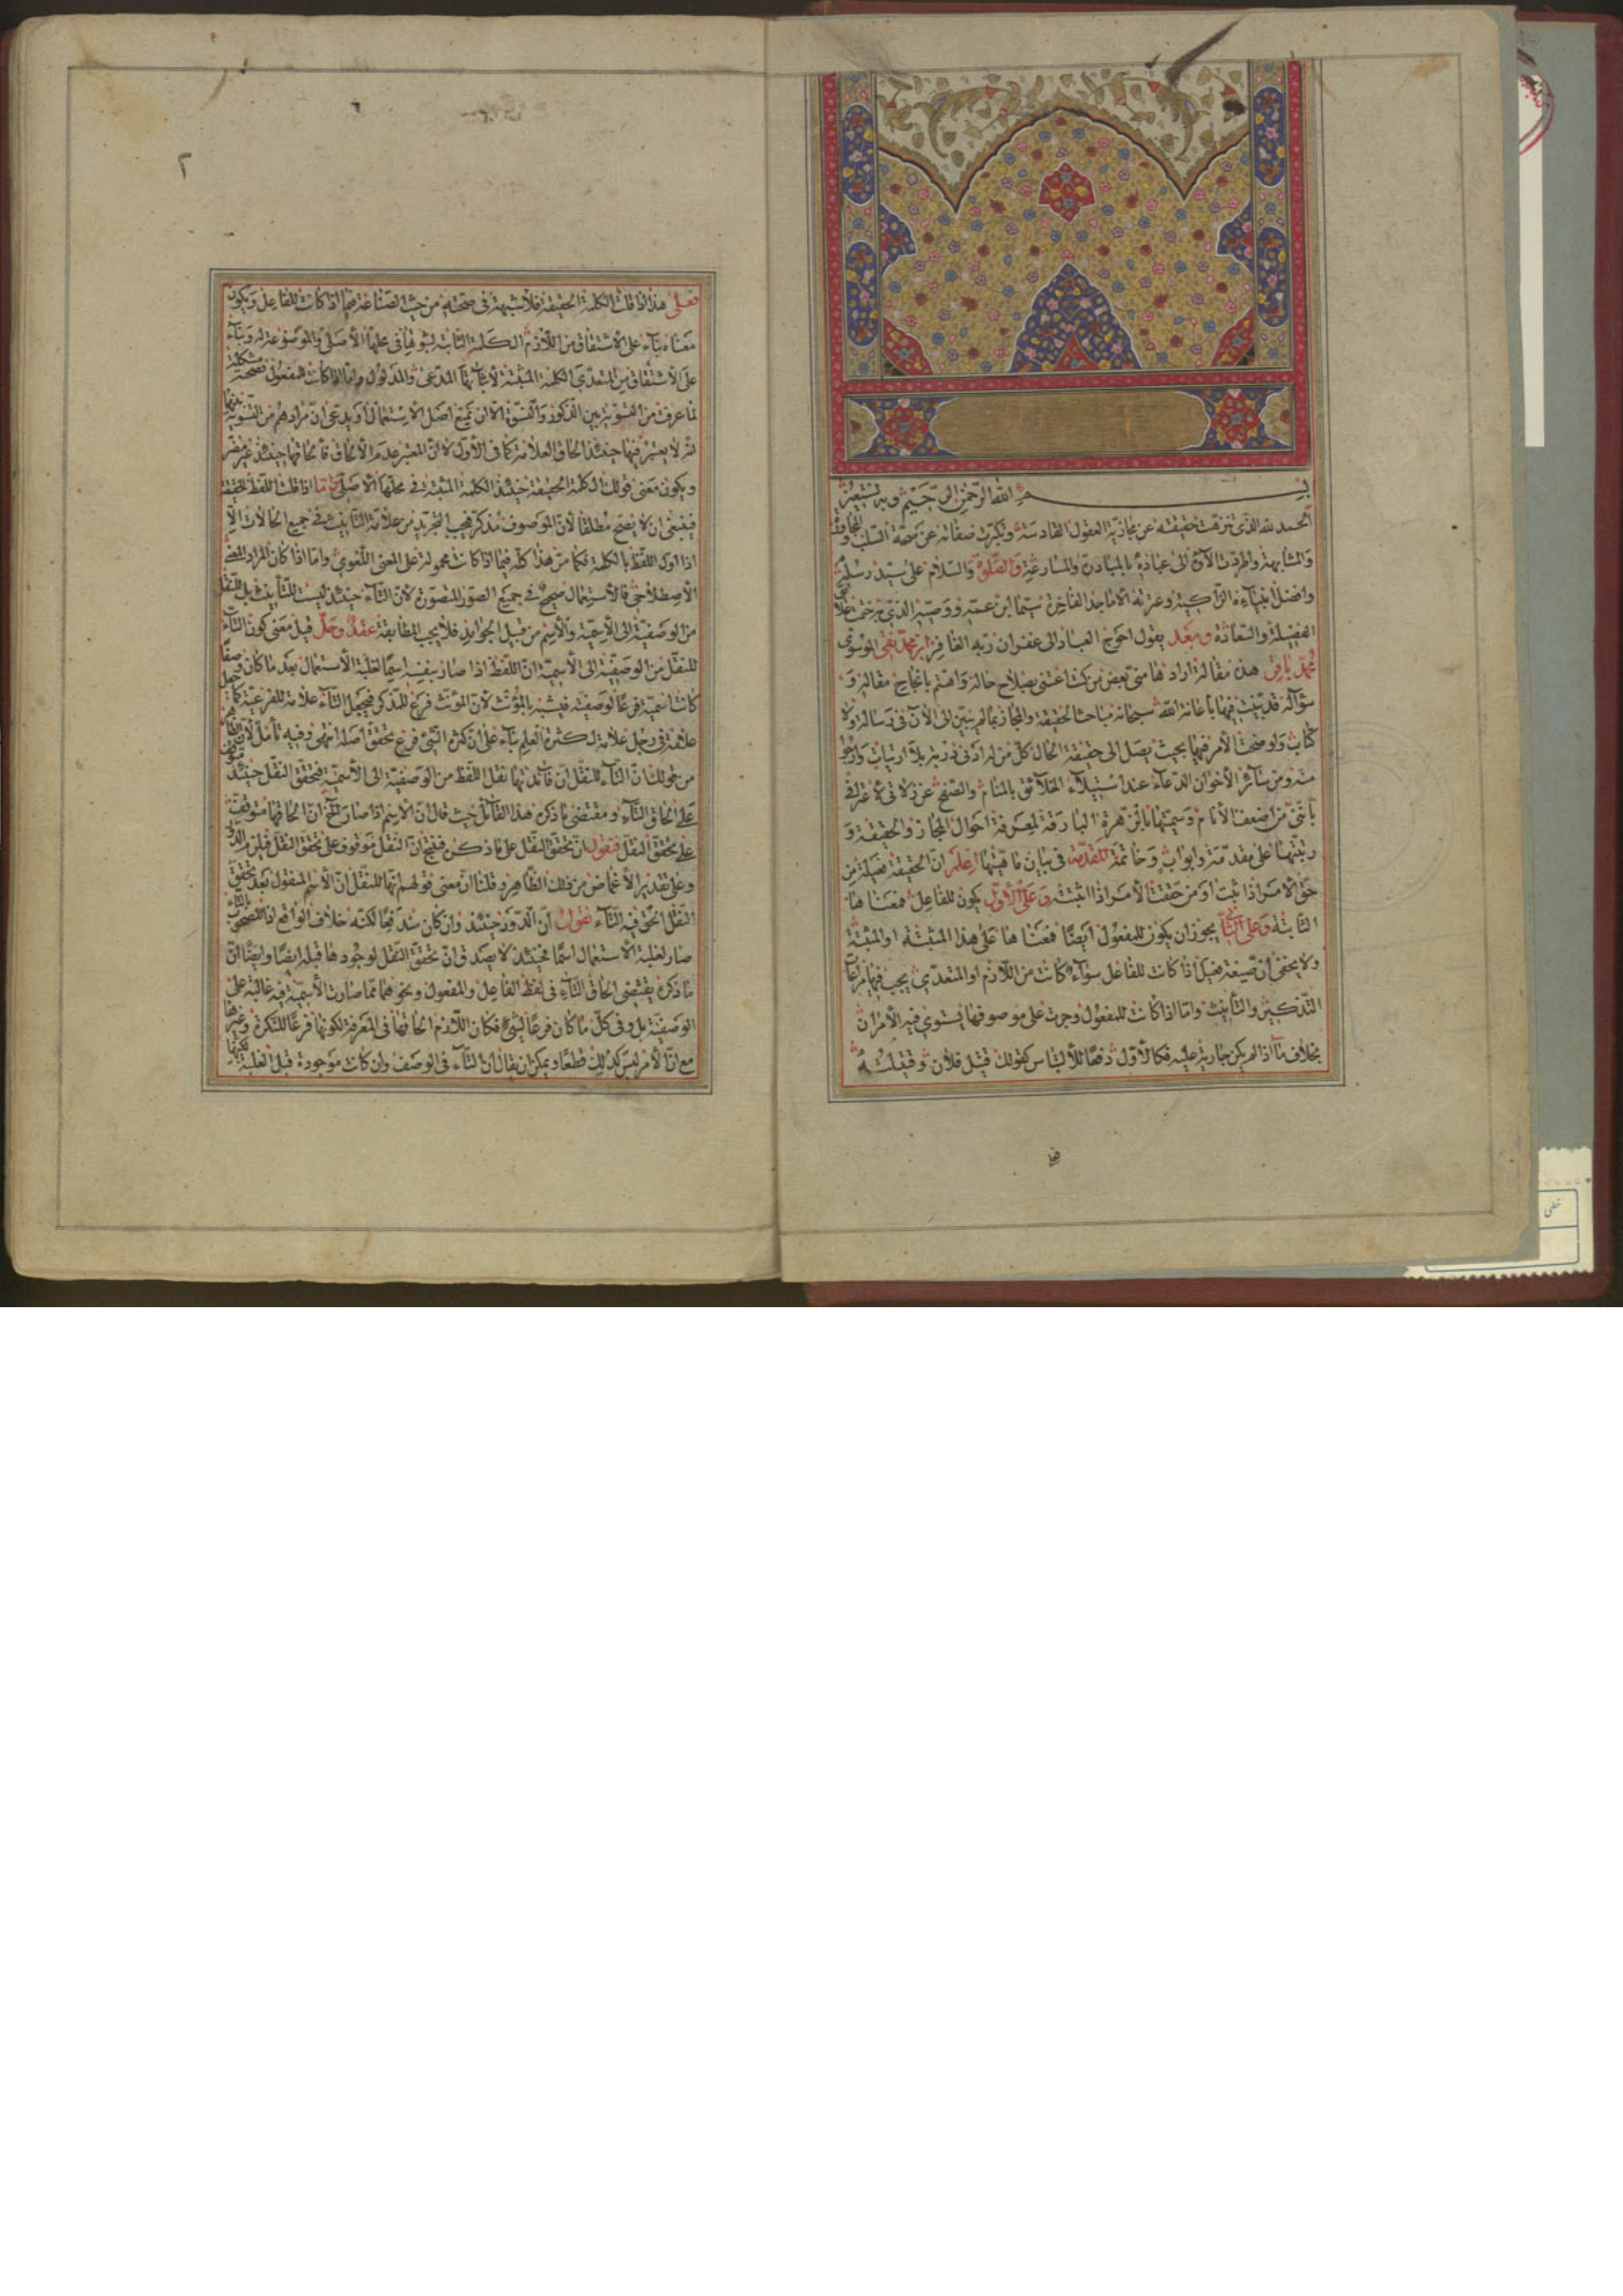 بسم الله الرحمن الرحيم وبه نستعين
الحمد لله الذي تنزهت حقيقته عن مجازية العقول القادسة وتكبرت صفاته عن صحة السلب
والمشابهة واطردت الآؤه الى عباده بالمبادرة والمسارعة والصلوة والسلام على سيد رسله
وافضل انبياءه الزاكية وعترته الاماجد الفاخرة سيما ابن عمه ووصيه الذي به ختمت
الفضيلة والسعادة وبعد يقول احوج العباد الى غفران ربه الغافر ابن محمد تقي الموسوي
محمد باقر هذه مقالة ارادها مني بعض من كنت اعتني بصلاح حاله واهتم بانجاح مقاله و
سؤاله قد بينت فيها باعانة الله سبحانه مباحث الحقيقة والمجاز بما لم يبين الى الآن في رسالة ولا
كتاب واوضحت الامر فيها بحيث يصل الى حقيقة الحال كل من له ادنى دربة بلا ارتياب وارجو
منه ومن سائر الأخوان الدعاء عند استيلاء الخلائق بالمنام والصفح عن زلاتي
بأنني من اضعف الأنام وسميتها بالزهرة البارقة لمعرفة احوال المجاز والحقيقة و
رتبتها على مقدمة وابواب وخاتمة المقدمة في بيان ماهيتها اعلم ان الحقيقة فعيلة من
حق الامر اذا ثبت او من حققت الأمر اذا اثبته وعلى الأول يكون للفاعل فمعناها
الثابتة وعلى الثاني يجوز ان يكون للمفعول ايضا فمعناها على هذا المثبتة او المثبتة
ولا يخفى ان صيغة فعيل اذا كانت للفاعل سواء كانت من اللازم او المتعدي يجب فيها مراعاة
التذكير والتأنيث واما اذا كانت للمفعول وجرت على موصوفها يستوي فيه الأمران
بخلاف ما اذا لم يكن جارية عليه فكالأول دفعا للألتباس كقولك قتيل فلان وقتيلته
٢
فعلى هذا اذا قلت الكلمة الحقيقة فلا شبهة في صحته من حيث الصناعة فيما اذا كانت للفاعل ويكون
معناه بناء على الاشتقاق من اللازم الكلمة الثابتة لثبوتها في محلها الأصلي والموضوعة له وبناء
على الاشتقاق من المتعدي الكلمة المثبتة لأثباتها المدعى والمدلول واما اذا كانت للمفعول فصحته مشكلة
لما عرفت من التسوية بين المذكور والتسوية الا ان يمنع اصل الاستعمال او يدعى ان مرادهم من التسوية
انه لا يعتبر فيها حينئذ الحاق العلامة كما في الأول لا ان المعتبر عدم الالحاق فالحاقها حينئذ غير مضر
ويكون معنى قولك الكلمة الحقيقة حينئذ الكلمة المثبتة في محلها الأصلي واما اذا قلت اللفظ الحقيقة
فينبغي ان لا يصح مطلقا لأن الموصوف مذكر فيجب التجريد من علامة التأنيث في جميع الحالات الا
اذا اول اللفظ بالكلمة فكما مر هذا كله فيما اذا كانت محمولة على المعنى اللغوي واما اذا كان المراد المعنى
الأصطلاحي فالأستعمال صحيح في جميع الصور المتصورة لأن التاء حينئذ ليست للتأنيث بل للنقل
من الوصفية الى الاسمية والاسم من قبيل الجوامد فلا يجب المطابقة عقد وحل قيل معنى كون التاء
للنقل من الوصفية الى الأسمية ان اللفظ اذا صار بنفسه اسما لغلبة الأستعمال بعد ما كان وصفا
كانت اسميته فرعا لوصفيته فيشبه بالمؤنث لأن المؤنث فرع للمذكر فيجعل التاء علامة للفرعية كما جعل
علامة في رجل علامة لكثرة العلم بناء على ان كثرة الشيء فرع تحقق اصله انتهى وفيه تأمل لأن الظاهر
من قولك ان التاء للنقل ان فائدتها نقل اللفظ من الوصفية الى الأسمية فتحقق النقل حينئذ
على الحاق التاء ومقتضى ما ذكره هذا القائل حيث قال ان الاسم اذا صار الخ ان الحاقها موقوف
على تحقق النقل فنقول ان تحقق النقل على ما ذكره فنتج ان النقل موقوف على تحقق النقل فيلزم الدور
وعلى تقدير الأغماض من ذلك الظاهر وقلنا ان معنى قولهم انها للنقل ان الأسم المنقول بعد تحقق
النقل الحق فيه التاء نقول ان الدور حينئذ وان كان مندفعا لكنه خلاف الواقع
صار لغلبة الاستعمال اسما فحينئذ لا يصدق ان تحقق النقل لوجودها قبله ايضا وايضا ان
ما ذكره يقتضي الحاق التاء في لفظ الفاعل والمفعول ونحوهما مما صارت الأسمية فيه غالبة على
الوصفية بل وفي كل ما كان فرعا لشيء فكان اللازم الحاقها في المعرفة لكونها فرعا للنكرة وغيرها
مع ان الأمر ليس كذلك قطعا ويمكن ان يقال ان التاء في الوصف وان كانت موجودة قبل الغلبة